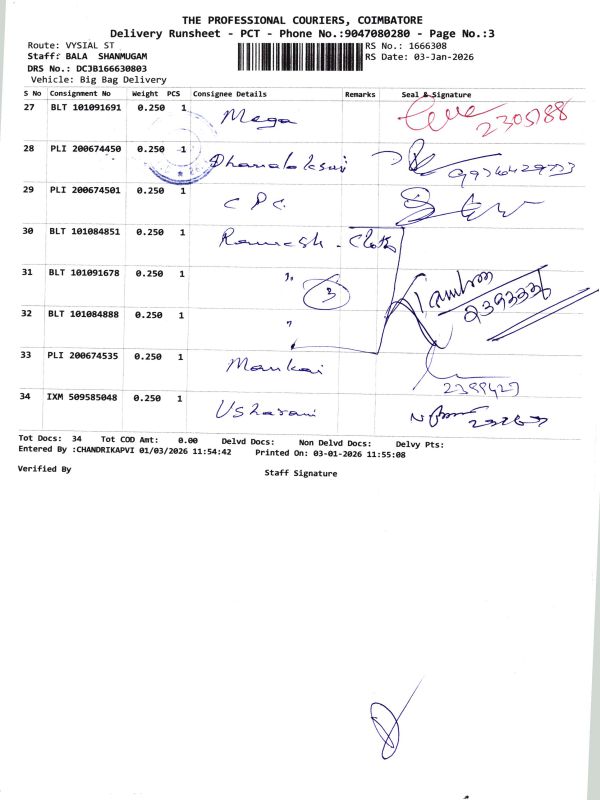 THE PROFESSIONAL COURIERS, COIMBATORE
Delivery Runsheet - PCT - Phone No.:9047080280 - Page No.:3
Route: VYSIAL ST RS No.: 1666308
Staff: BALA SHANMUGAM RS Date: 03-Jan-2026
DRS No.: DCJB166630803
Vehicle: Big Bag Delivery
S No Consignment No Weight PCS Consignee Details Remarks Seal & Signature
27 BLT 101091691 0.250 1 Mega 2305188
28 PLI 200674450 0.250 1 Dhanalaksmi
29 PLI 200674501 0.250 1 CPC
30 BLT 101084851 0.250 1 Ramesh - Cloth
31 BLT 101091678 0.250 1 " 3
32 BLT 101084888 0.250 1 "
33 PLI 200674535 0.250 1 Mankai 2399429
34 IXM 509585048 0.250 1 Usharani
Tot Docs: 34 Tot COD Amt: 0.00 Delvd Docs: Non Delvd Docs: Delvy Pts:
Entered By :CHANDRIKAPVI 01/03/2026 11:54:42 Printed On: 03-01-2026 11:55:08
Verified By Staff Signature